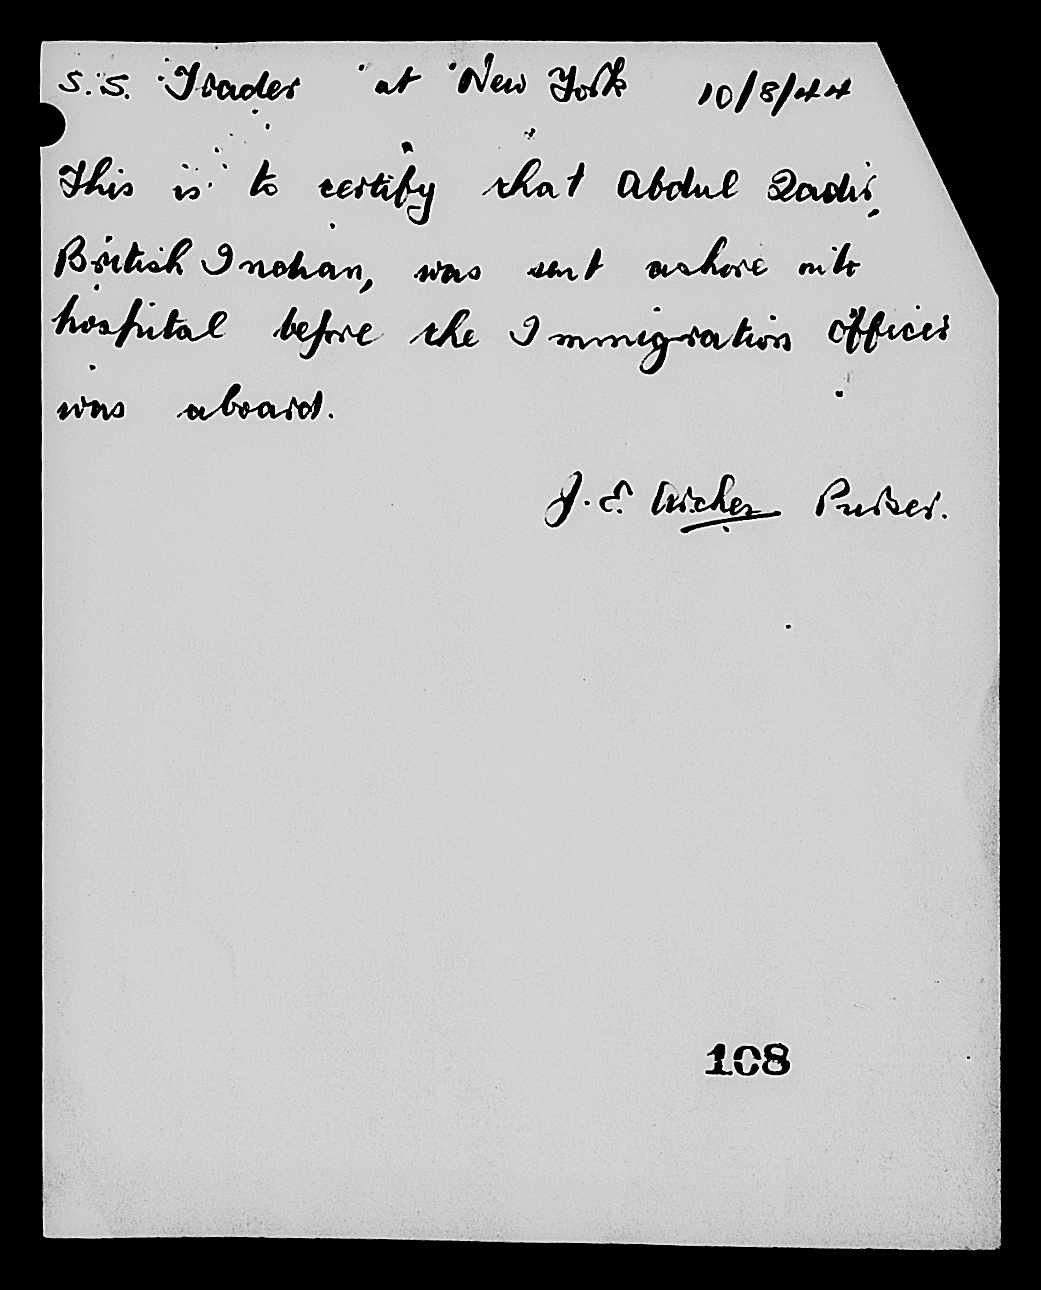 S.S. Trader at New York 10/8/44
This is to certify that Abdul Qadir,
British Indian, was sent ashore into
hospital before the Immigration Officer
was aboard.
J. E. Archer Purser.
108